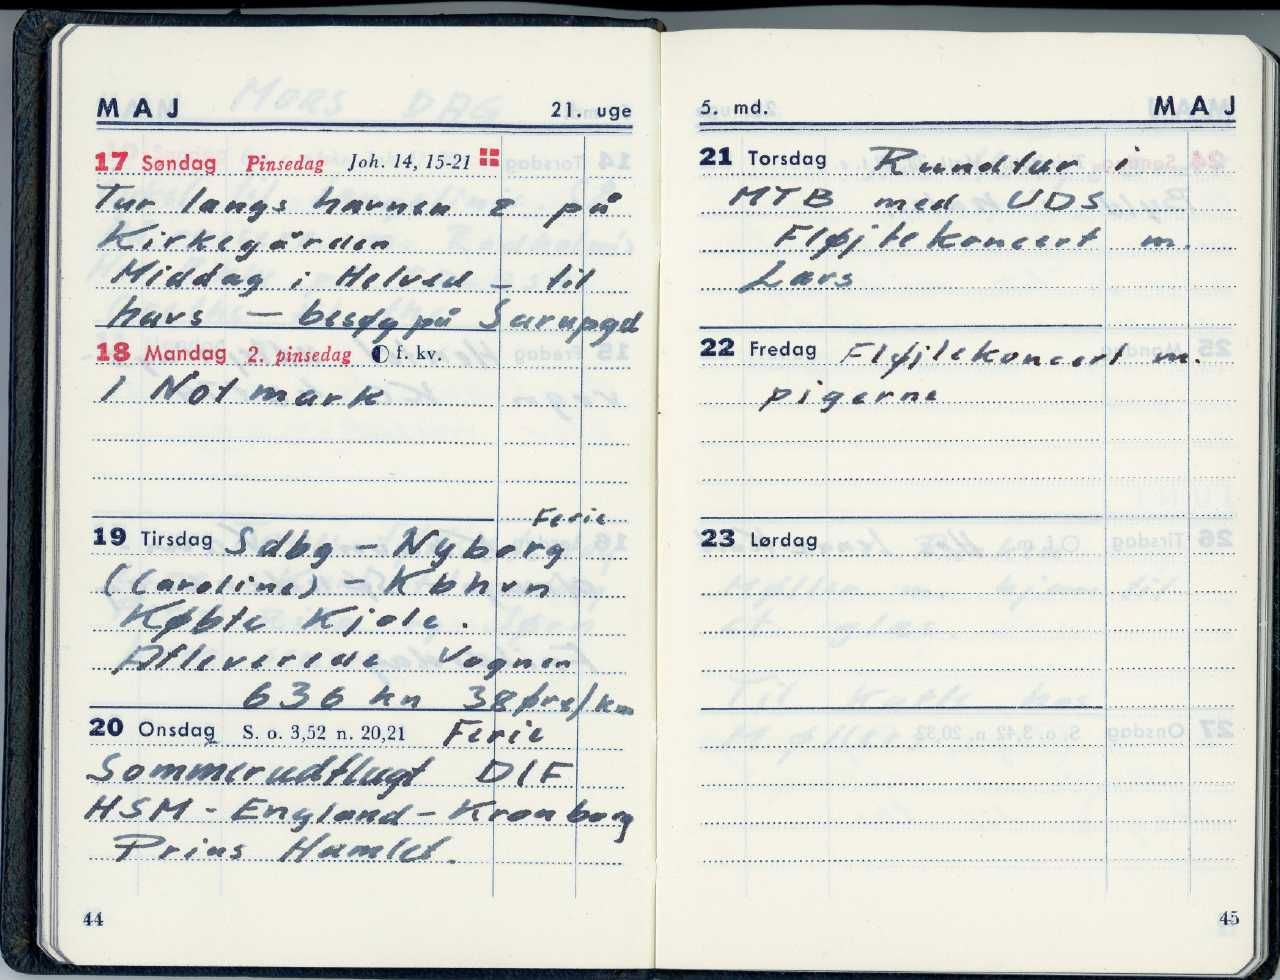 MAJ 21. uge
17 Søndag Pinsedag Joh. 14, 15-21
Tur langs havnen & på
Kirkegården
Middag i Helved – til
havs – besøg på Sarupgd
18 Mandag 2. pinsedag f. kv.
I Notmark
Ferie
19 Tirsdag Sdbg – Nyborg
(Caroline) – Kbhvn
Købte Kjole.
Afleverede Vognen
636 km 38 øre/km
20 Onsdag S. o. 3,52 n. 20,21 Ferie
Sommerudflugt DIF
HSM - England - Kronborg
Prins Hamlet.
44
5. md. MAJ
21 Torsdag Rundtur i
MTB med UDS
Fløjtekoncert m.
Lars
22 Fredag Fløjtekoncert m.
pigerne
23 Lørdag
45